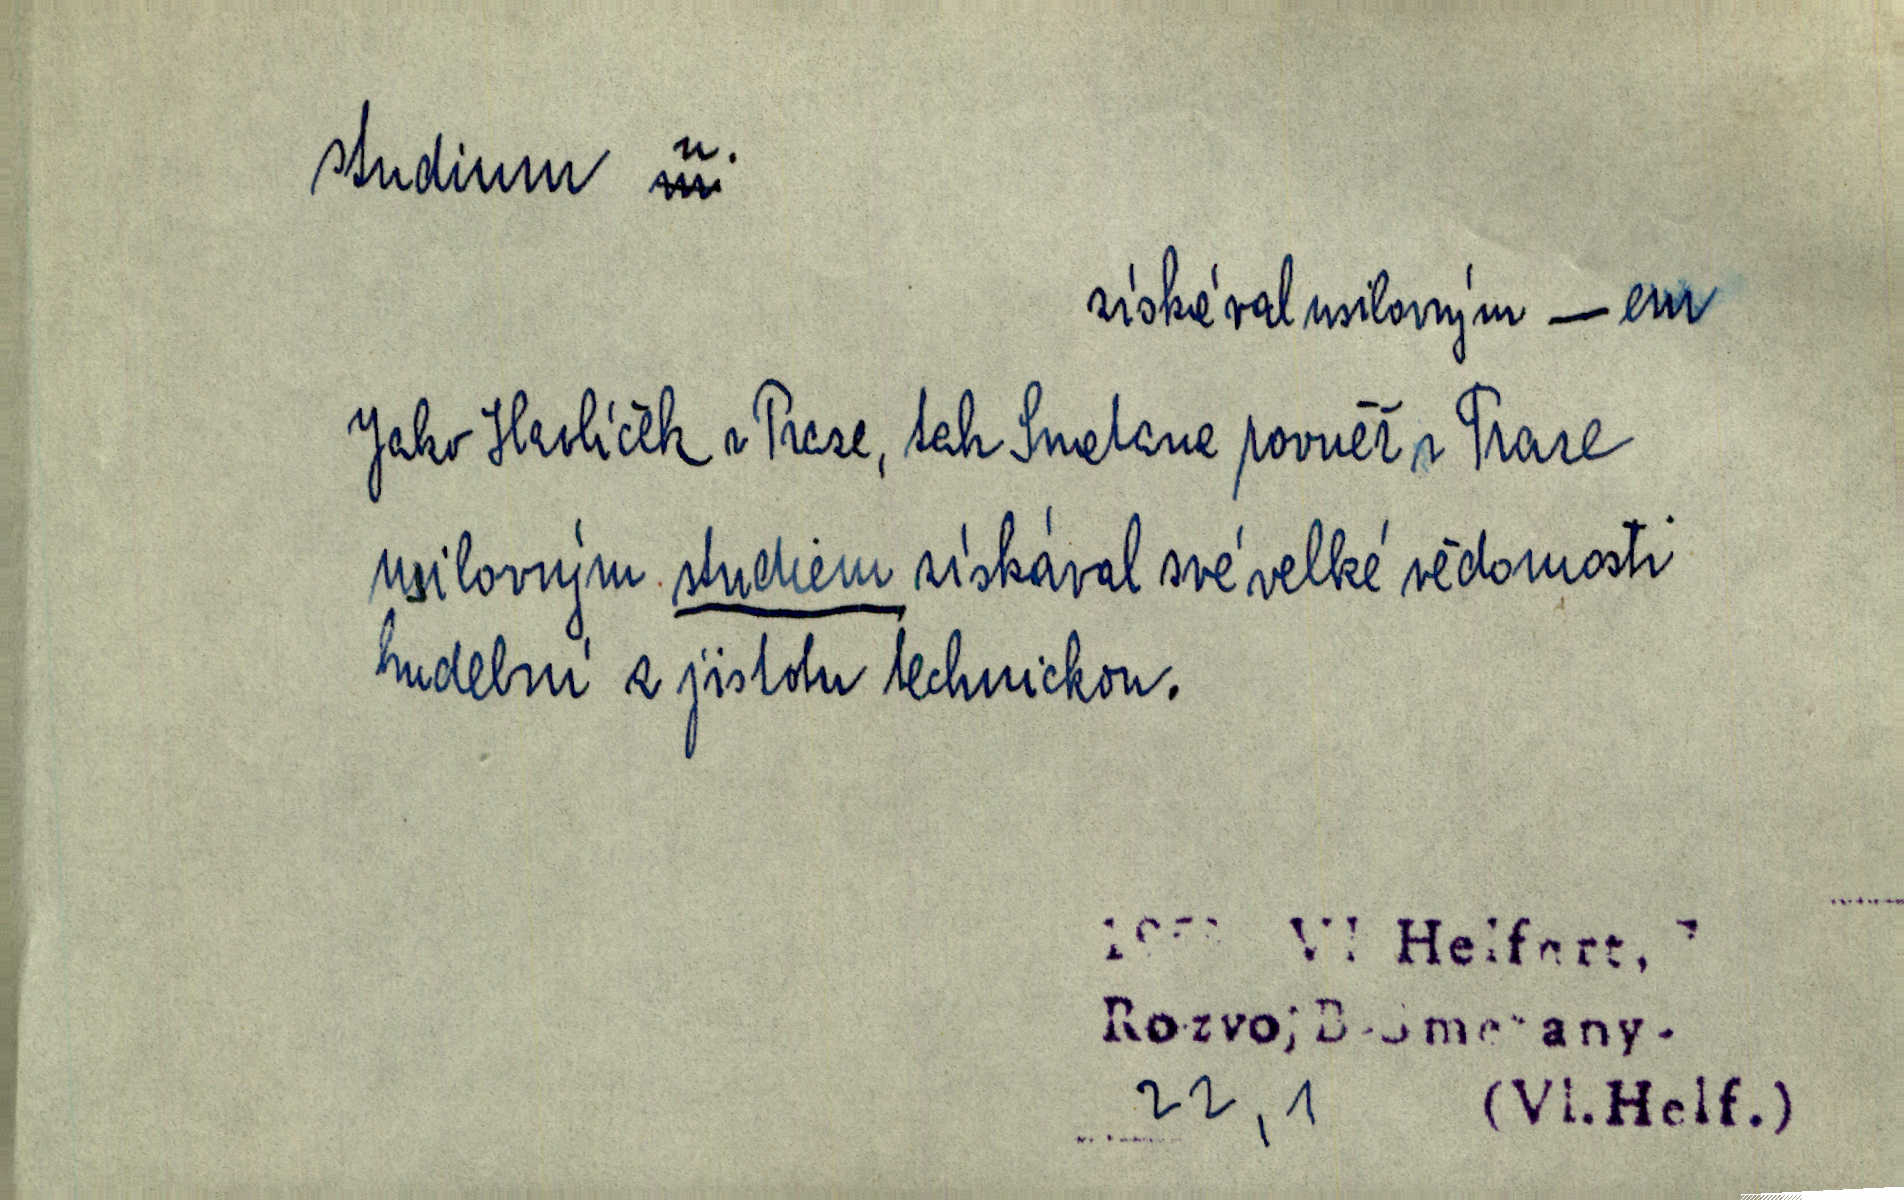 studium n.
získával usilovným — em
Jako Havlíček v Praze, tak Smetana rovněž v Praze
usilovným studiem získával své velké vědomosti
hudební a jistotu technickou.
Vl Helfert,
Rozvoj B. Smetany.
22,1 (Vl. Helf.)